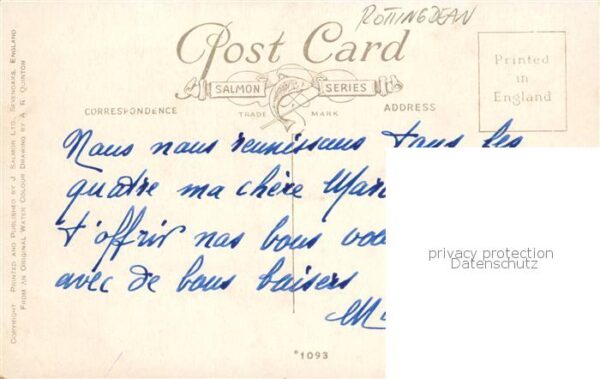 ROTTINGDEAN
Post Card
SALMON SERIES
TRADE MARK
CORRESPONDENCE
ADDRESS
Printed
in
England
Nous nous reunissons tous les
quatre ma chère
t'offrir nos bons
avec de bons baisers
*1093
privacy protection
Datenschutz
COPYRIGHT PRINTED AND PUBLISHED BY J. SALMON LTD., SEVENOAKS, ENGLAND
FROM AN ORIGINAL WATER COLOUR DRAWING BY A. R. QUINTON